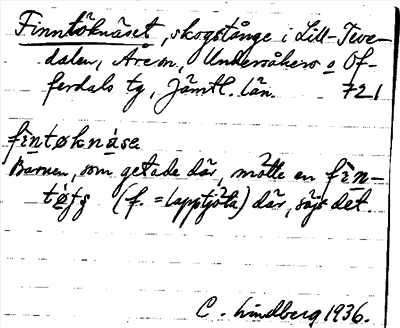 Finntöknäset, skogstånge i Lill-Teve-
dalen, Åre sn, Undersåkers o Of-
ferdals tg, Jämtl. län. 721
fìntøknása
Barnen, som getade där, mötte en fìn-
tǿjs (f. = lapptjöta) där, säjs det.
C. Lindberg 1936.